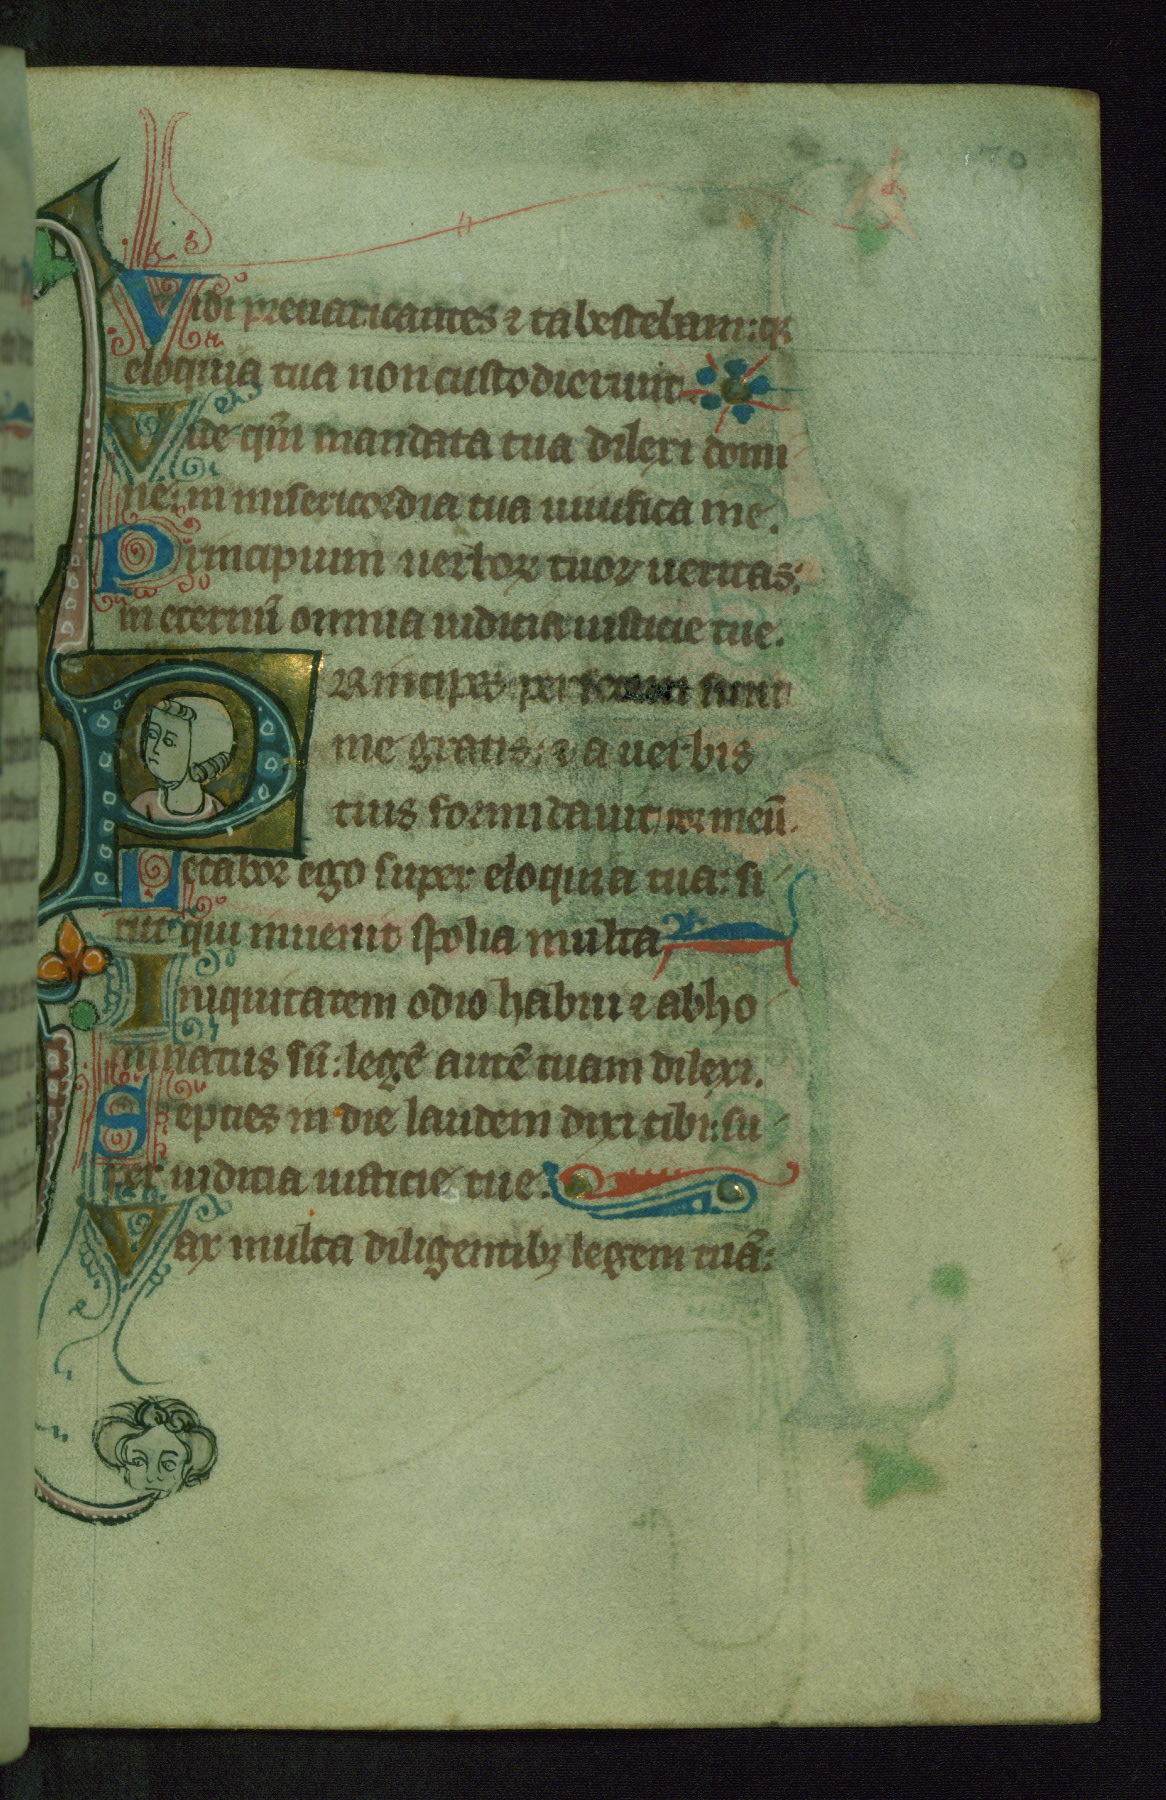 170
Vidi preuaricantes ⁊ tabescebam: qꝛ
eloquia tua non custodierunt.
Vide qm̄ mandata tua dilexi domi
ne: in misericordia tua uiuifica me.
Principium uerboꝝ tuoꝝ ueritas:
in eternū omnia iudicia iusticie tue.
PRincipes persecuti sunt
me gratis: ⁊ a uerbis
tuis formidauit cor meū.
Letabor ego super eloquia tua: si
cut qui inuenit spolia multa
Iniquitatem odio habui ⁊ abho
minatus sū: legē autē tuam dilexi.
Septies in die laudem dixi tibi: su
per iudicia iusticie tue.
Pax multa diligentibꝫ legem tuā: